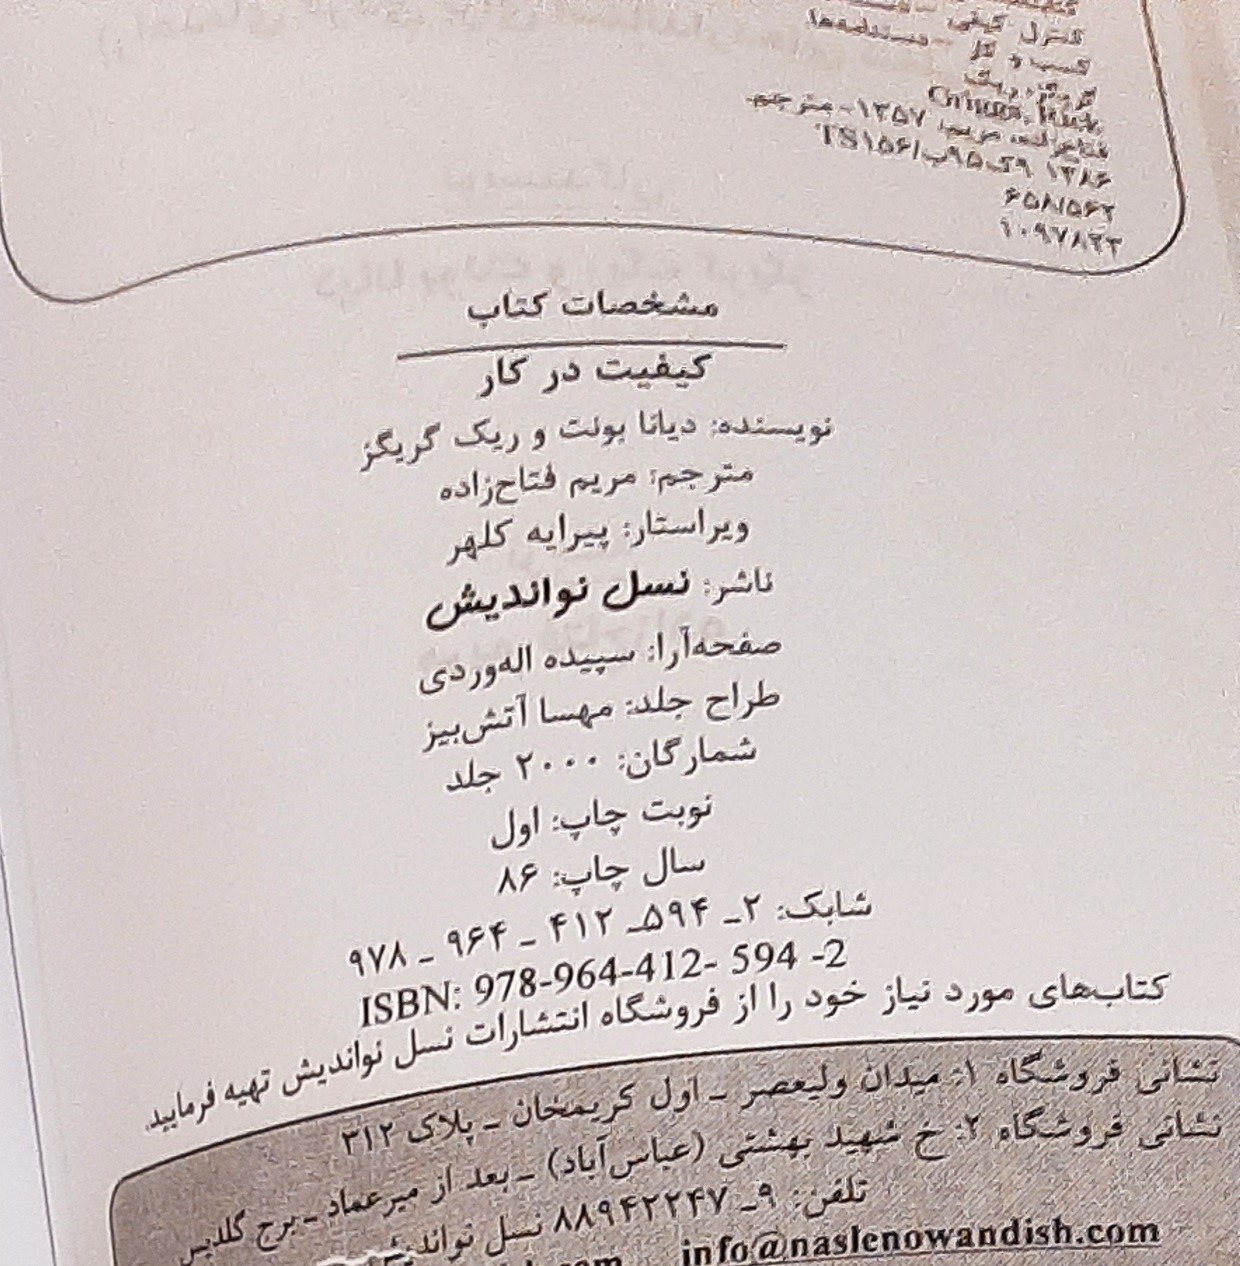 کنترل کیفی
کسب و کار -- دستنامه‌ها
گریگز، ریک
Griggs, Rick
فتاح‌زاده، مریم، ۱۳۵۷- مترجم
۱۳۸۶ ۹ک۹۵ب/TS۱۵۶
۶۵۸/۵۶۲
۱۰۹۷۸۲۲
مشخصات کتاب
کیفیت در کار
نویسنده: دیانا بونت و ریک گریگز
مترجم: مریم فتاح‌زاده
ویراستار: پیرایه کلهر
ناشر: نسل نواندیش
صفحه‌آرا: سپیده اله‌وردی
طراح جلد: مهسا آتش‌بیز
شمارگان: ۲۰۰۰ جلد
نوبت چاپ: اول
سال چاپ: ۸۶
شابک: ۲ـ ۵۹۴ـ ۴۱۲ - ۹۶۴ - ۹۷۸
ISBN: 978-964-412- 594 -2
کتاب‌های مورد نیاز خود را از فروشگاه انتشارات نسل نواندیش تهیه فرمایید.
نشانی فروشگاه ۱: میدان ولیعصر - اول کریمخان - پلاک ۳۱۲
نشانی فروشگاه ۲: خ شهید بهشتی (عباس‌آباد) - بعد از میرعماد - برج گلدیس
تلفن: ۹ـ ۸۸۹۴۲۲۴۷ نسل نواندیش
info@naslenowandish.com